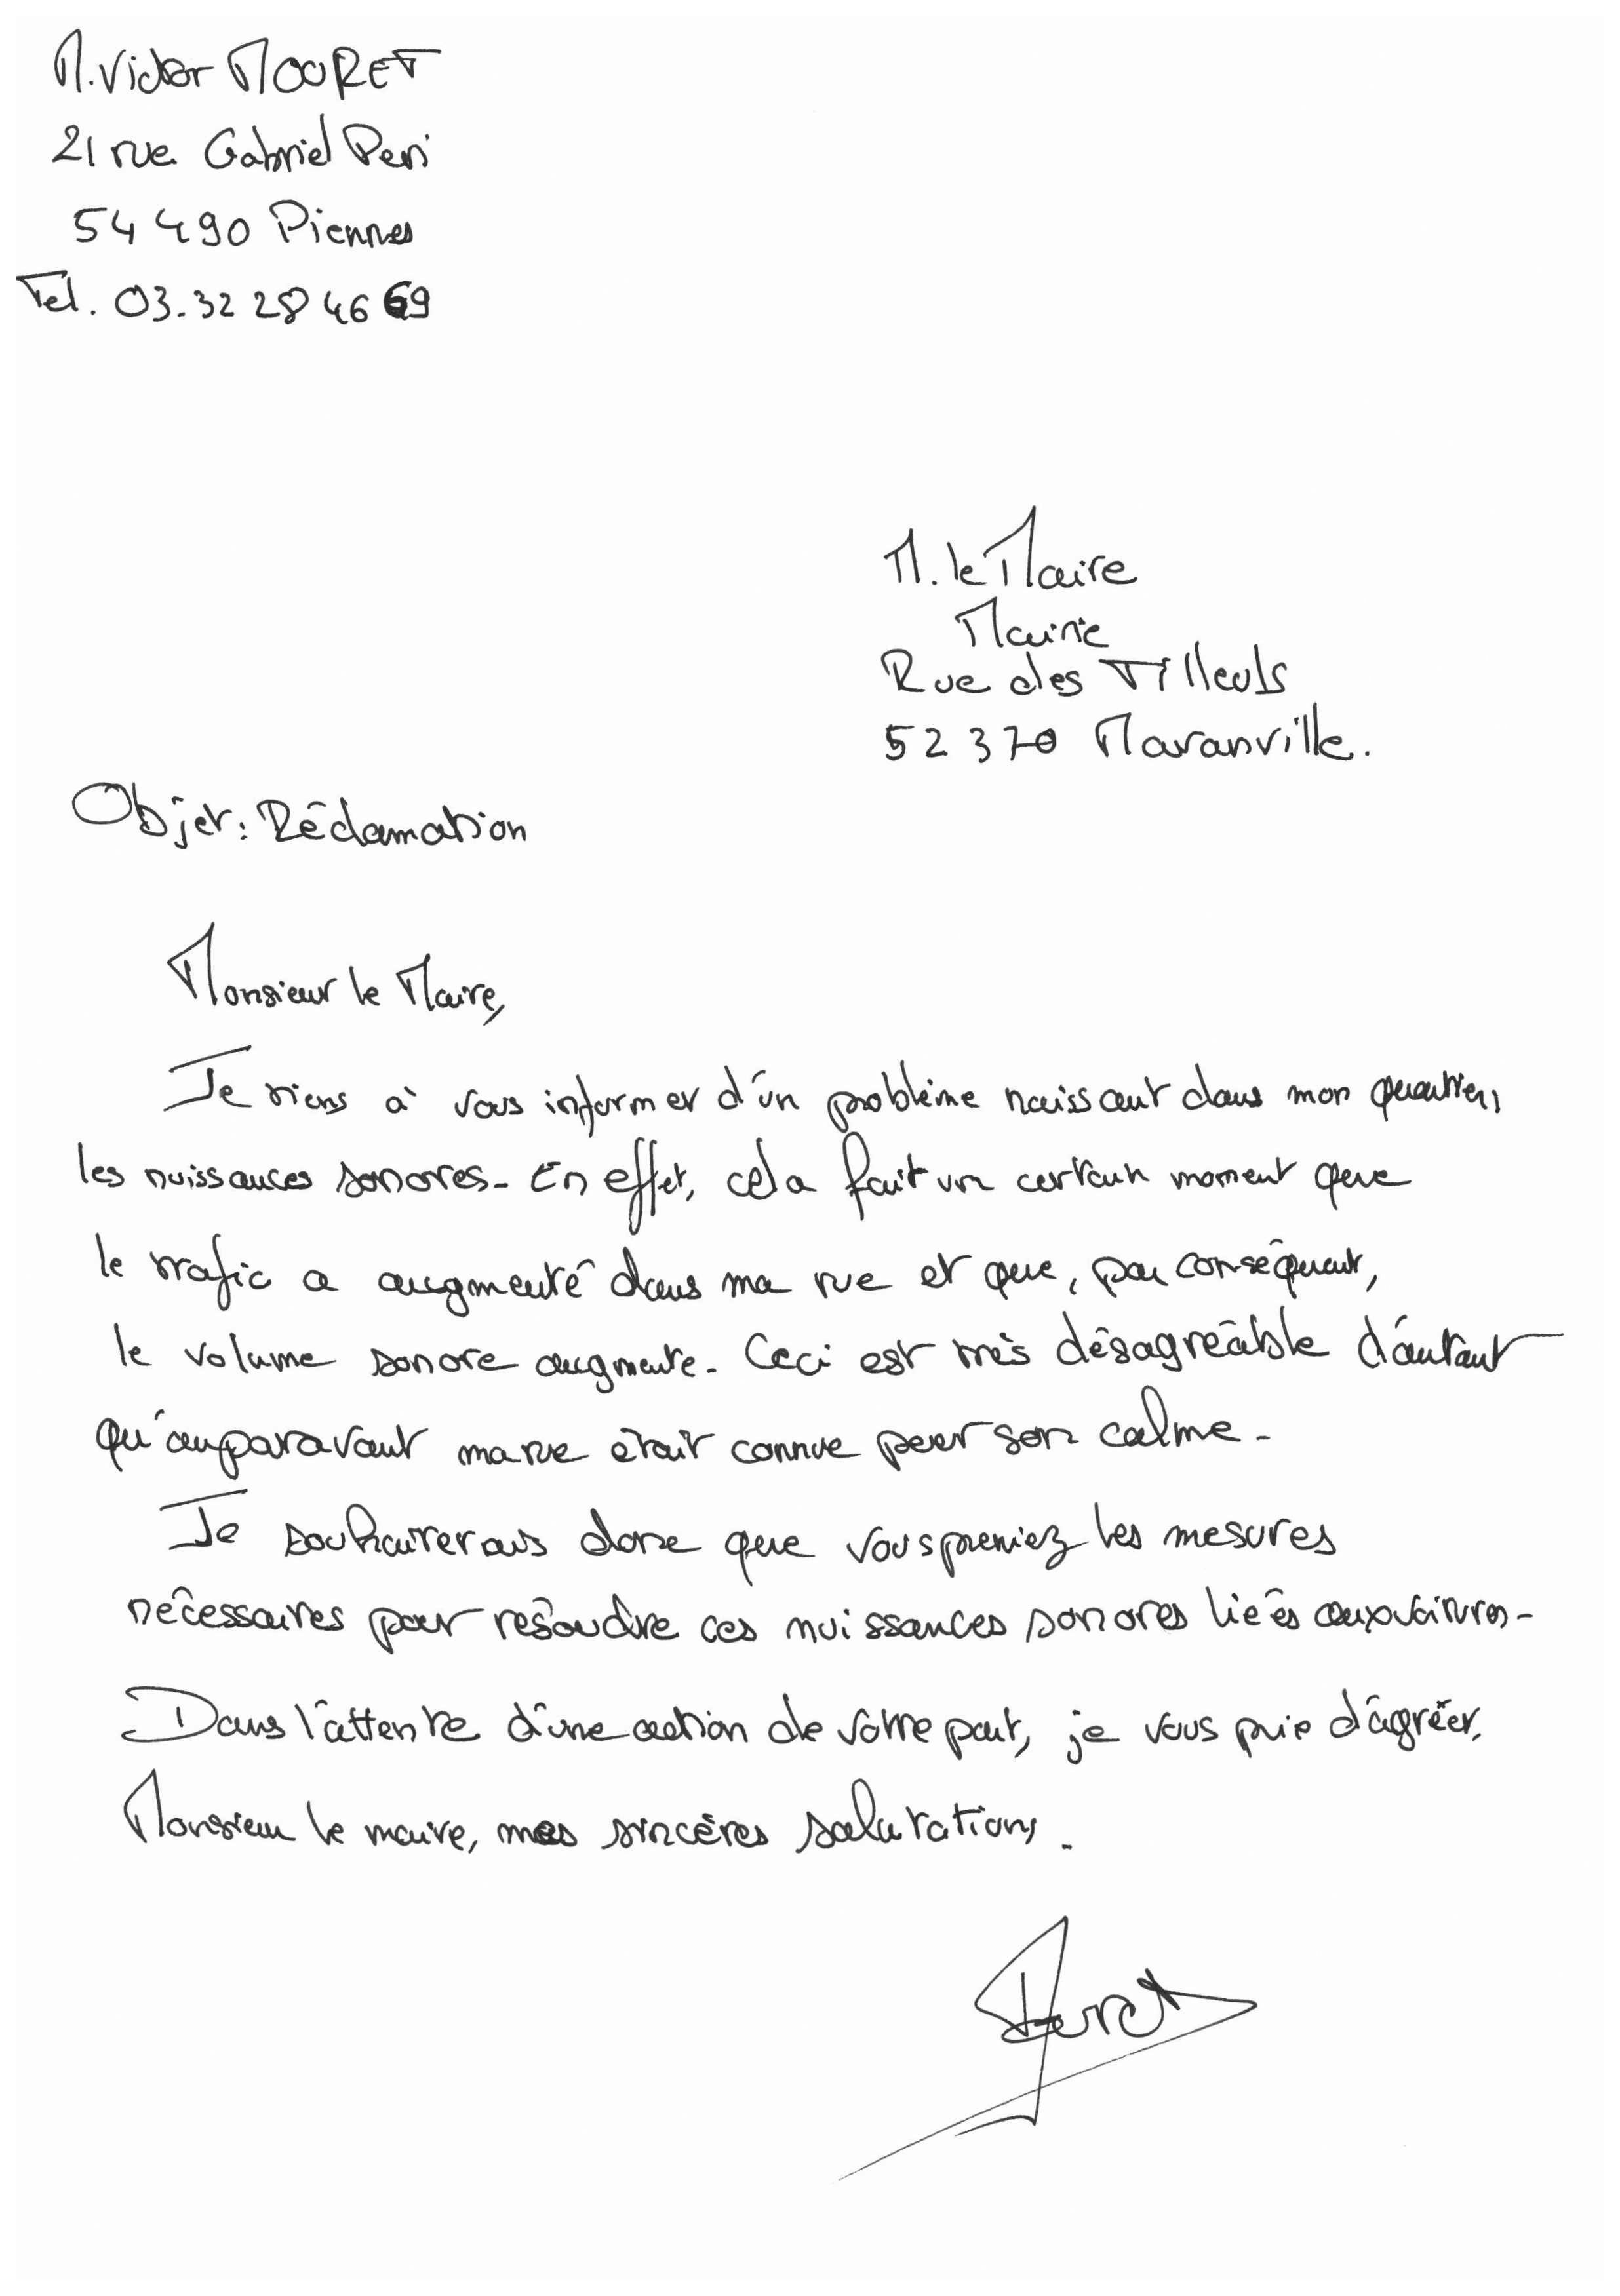 M. Victor MOURET
21 rue Gabriel Peri
54 490 Piennes
Tel. 03.32 28 46 69
M. le Maire
Mairie
Rue des Tilleuls
52 370 Maranville.
Objet : Réclamation
Monsieur le Maire,
Je tiens à vous informer d'un problème naissant dans mon quartier,
les nuissances sonores. En effet, cela fait un certain moment que
le trafic a augmenté dans ma rue et que, par conséquent,
le volume sonore augmente. Ceci est très désagréable d'autant
qu'auparavant ma rue était connue pour son calme.
Je souhaiterais donc que vous preniez les mesures
nécessaires pour résoudre ces nuissances sonores liées aux voitures.
Dans l'attente d'une action de votre part, je vous prie d'agréer,
Monsieur le maire, mes sincères salutations.